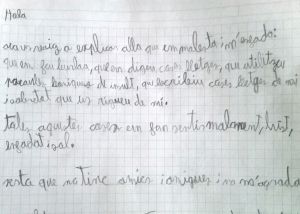 Hola
avui vaig a explicar allò que em molesta i m'enfada:
que em feu burles, que em digueu coses lletges, que utilitzeu
paraules d'insult, que escribiu coses lletges de mi
i sobretot que us rigueu de mi.
totes aquestes coses em fan sentir malament, trist,
enfadat i sol.
resta que no tinc amics i amigues i no m'agrada